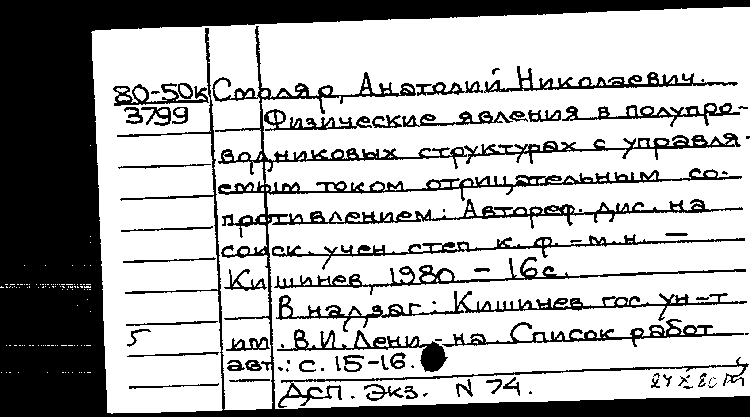 80-50к Столяр, Анатолий Николаевич.
3799 Физические явления в полупро-
водниковых структурах с управля-
емым током отрицательным со-
противлением: Автореф. дис. на
соиск. учен. степ. к. ф.-м.н. —
Кишинев, 1980 - 16 с.
В надзаг: Кишинев гос. ун-т
5 им. В.И. Лени - на. Список работ
авт.: с. 15-16.
ДСП. Экз. N 74.